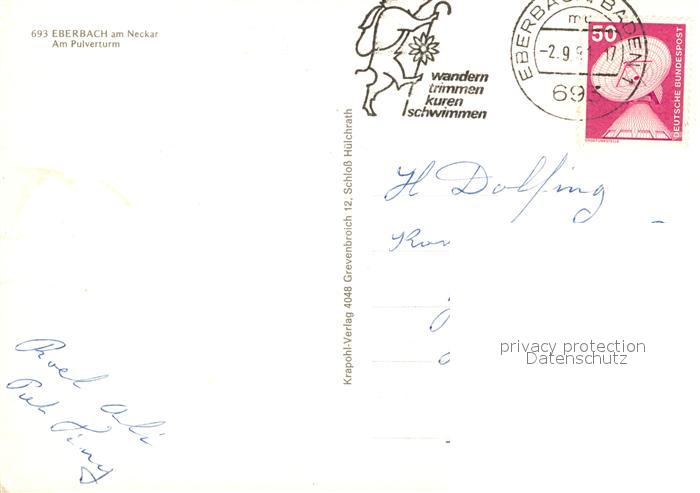 693 EBERBACH am Neckar
Am Pulverturm
wandern
trimmen
kuren
schwimmen
EBERBACH, BADEN 1
-2.9.81-17
693
50
DEUTSCHE BUNDESPOST
ERDFUNKSTELLE
Krapohl-Verlag 4048 Grevenbroich 12, Schloß Hülchrath
H Dolfing
privacy protection
Datenschutz
Roel